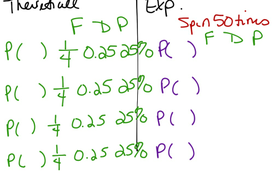 Theoretical Exp.
Spin 50 times
F D P F D P
P( ) 1/4 0.25 25% P( )
P( ) 1/4 0.25 25% P( )
P( ) 1/4 0.25 25% P( )
P( ) 1/4 0.25 25% P( )